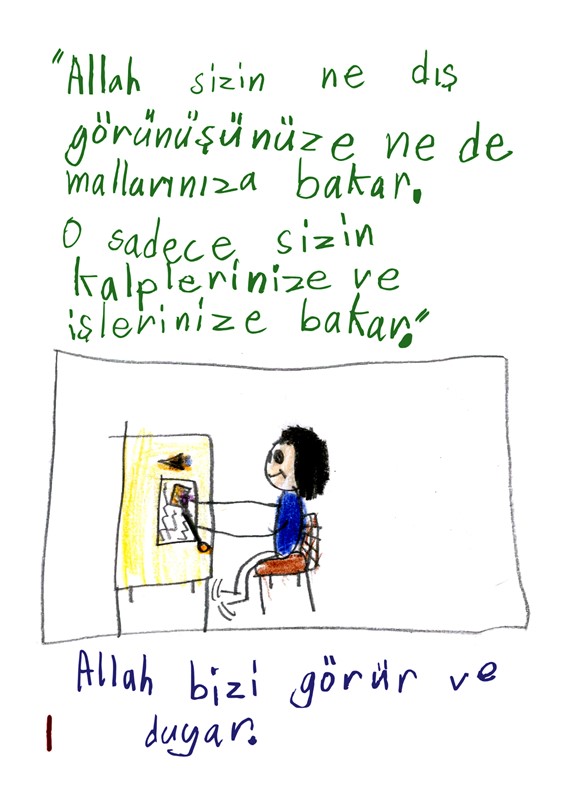 "Allah sizin ne dış
görünüşünüze ne de
mallarınıza bakar.
O sadece sizin
kalplerinize ve
işlerinize bakar."
Allah bizi görür ve
duyar.